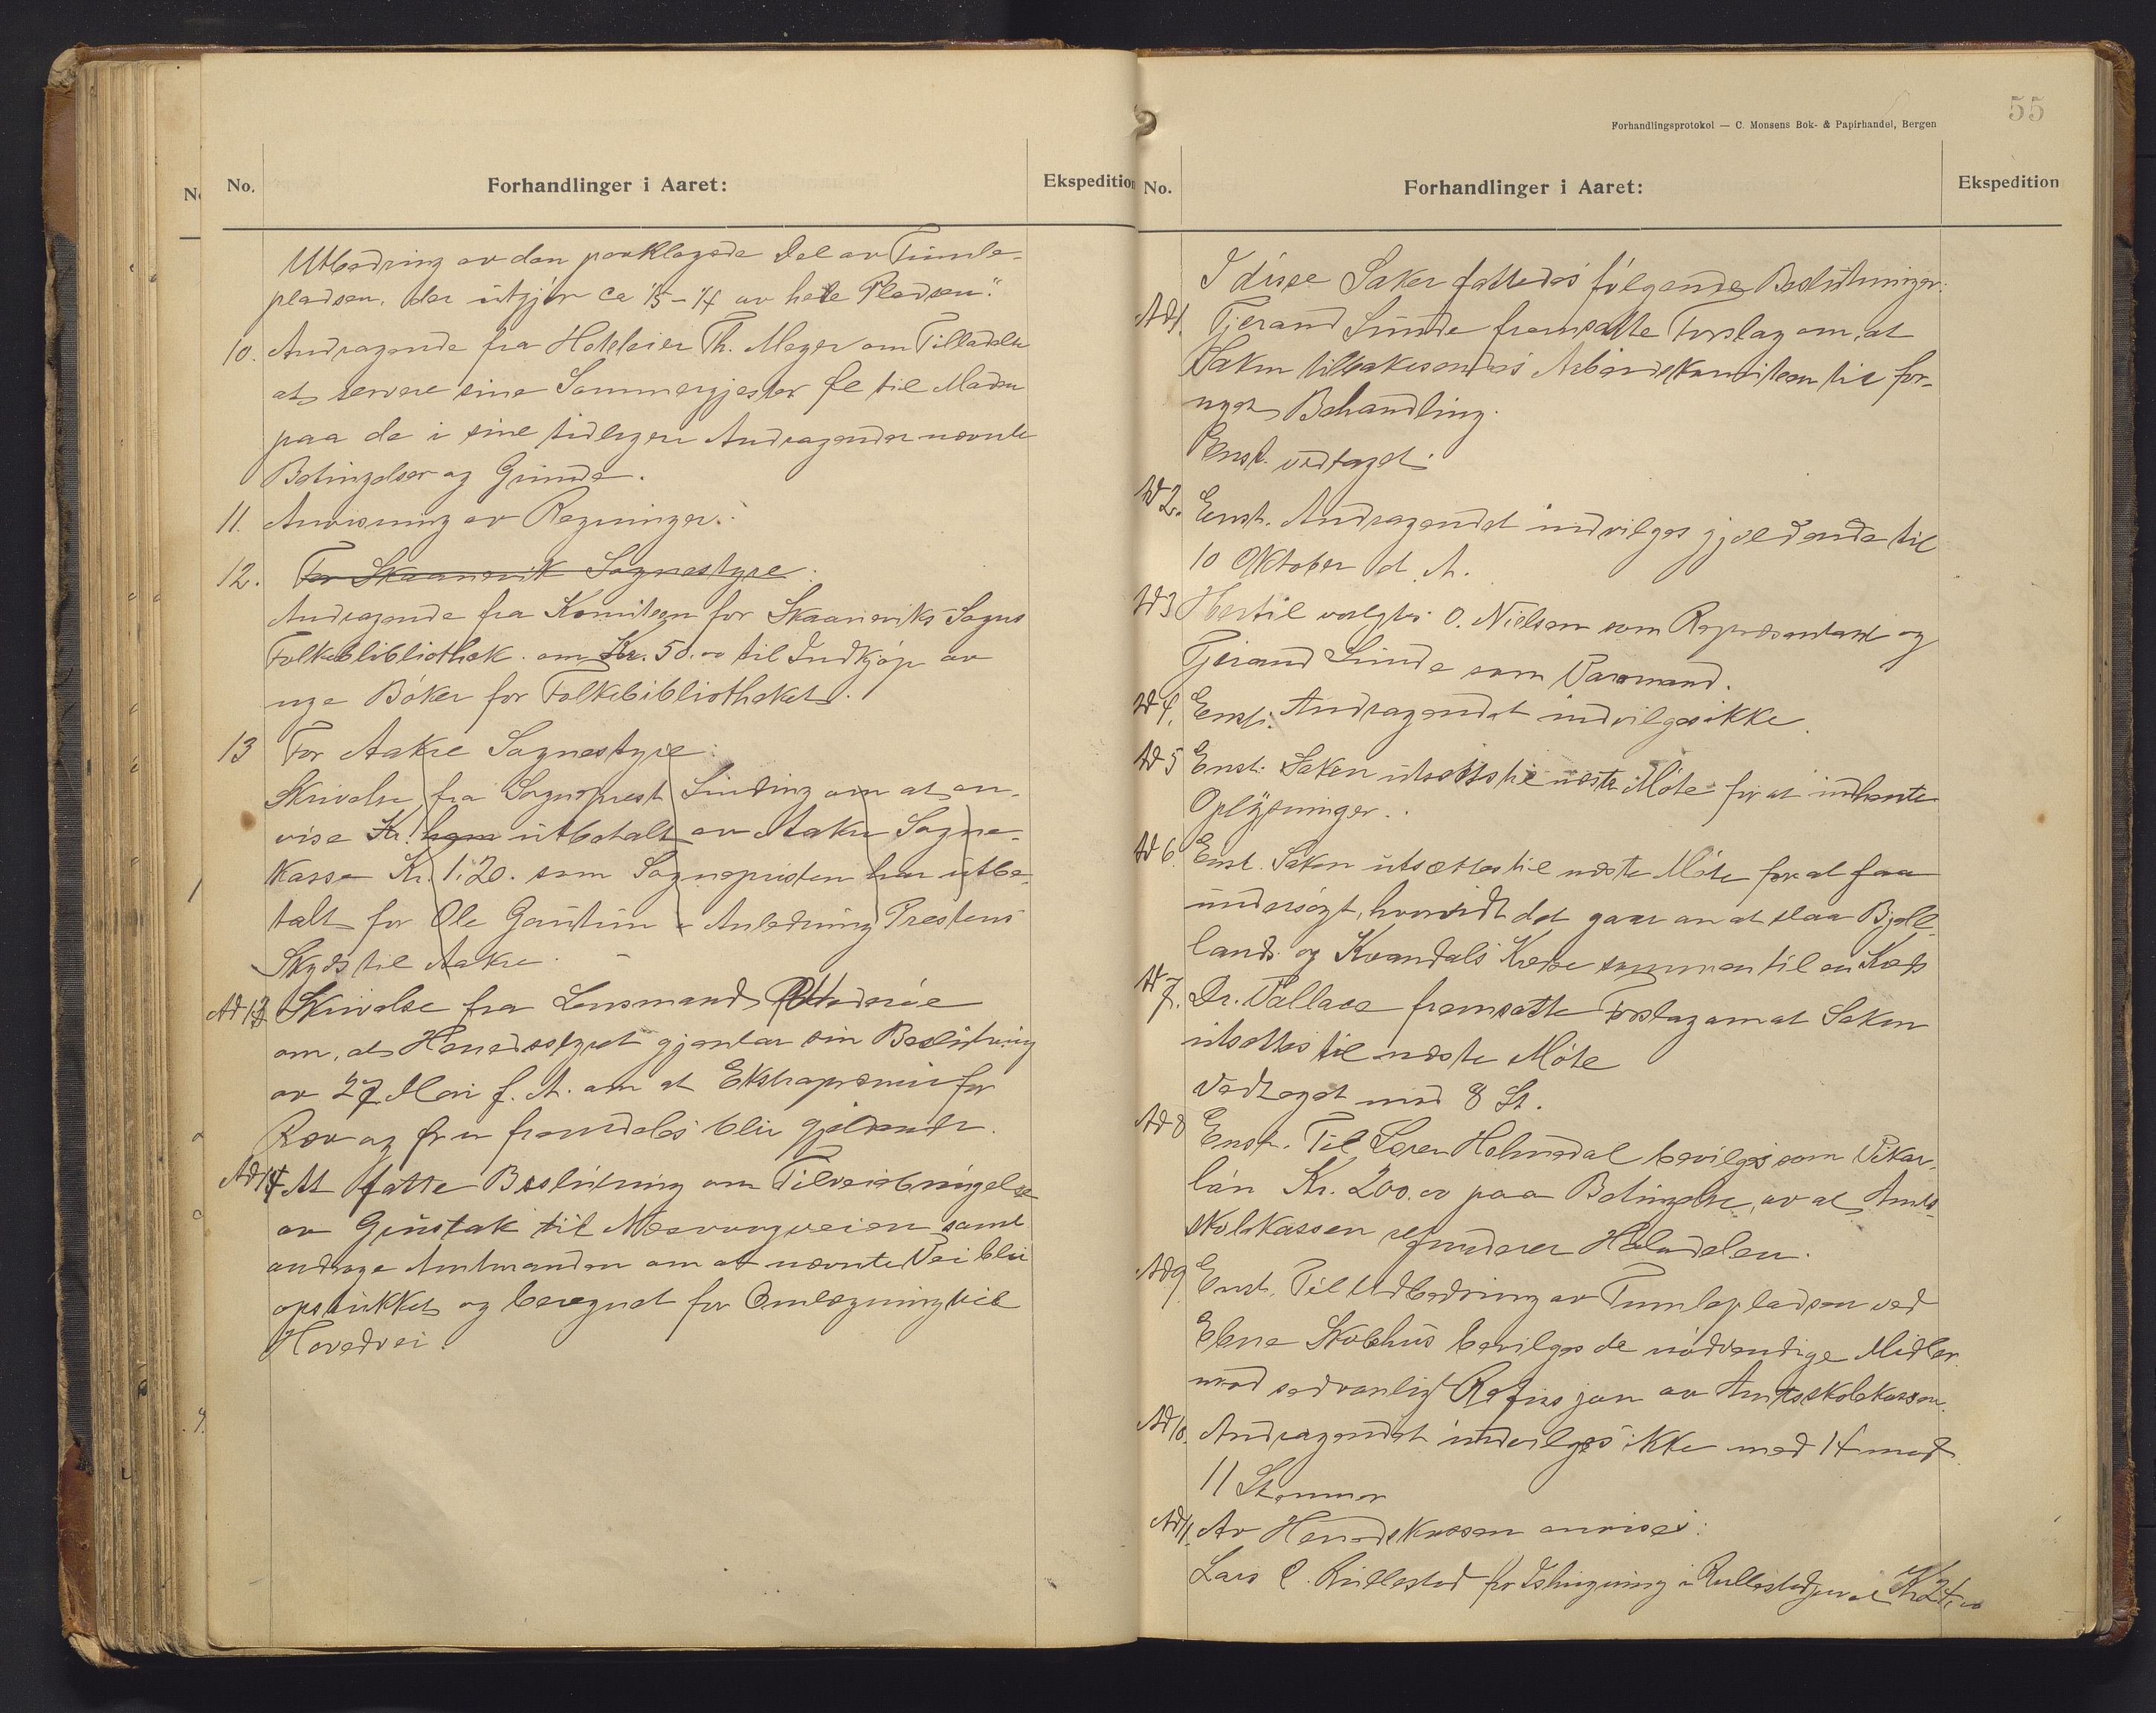 No.
Forhandlinger i Aaret:
Ekspedition
Utbedring av den paaklagede Del av Tumle-
pladsen, der utgjør ca 1/5 - 1/4 av hele Pladsen."
10. Andragende fra Hoteleier Th. Meyer om Tilladelse
at servere sine Sommergjester Øl til Maden
paa de i sine tidligere Andragender nevnte
Betingelser og Grunde.
11. Anvisning av Regninger.
12. For Skaanevik Sognestyre:
Andragende fra Komiteen for Skaaneviks Sogns
Folkebibliothek om Kr. 50.00 til Indkjøp av
nye Bøker for Folkebibliotheket.
13 For Aakre Sognestyre:
Skrivelse fra Sogneprest Sinding om at an-
vise Kr. ham utbetalt av Aakre Sogne-
kasse Kr. 1.20. som Sognepresten har utbe-
talt for Ole i Anledning Prestens
Skyds til Aakre.
Ad 13 Skrivelse fra Lensmand
om, at Herredsstyret gjentar sin Beslutning
av 27 Mai f. A. om at Ekstrapremie for
Rev og fremdeles blir gjeldende.
Ad 14 At fatte Beslutning om Tilveiebringelse
av Grustak til veien samt
andrage Amtmanden om at nevnte Vei blir
opstukket og beregnet for Omlegning til
Hovedvei.
Forhandlingsprotokol — C. Monsens Bok- & Papirhandel, Bergen
55
No.
Forhandlinger i Aaret:
Ekspedition
I disse Saker fattedes følgende Beslutninger:
Ad 1. Tjerand Sunde fremsatte Forslag om, at
Saken tilbakesendes Arbeidskomiteen til for-
nyet Behandling.
Enst. vedtaget.
Ad 2. Enst. Andragendet indvilges gjeldende til
10 Oktober d. A.
Ad 3 Hertil valgtes O. Nielsen som Repræsentant og
Tjerand Sunde som Varamand.
Ad 4. Enst. Andragendet indvilges ikke.
Ad 5 Enst. Saken utsettes til neste Møte for at indhente
Oplysninger.
Ad 6. Enst. Saken utsættes til neste Møte for at faa
undersøgt, hvorvidt det gaar an at slaa Bjell-
lands og Kvandals Kredse sammen til en Kreds
Ad 7. Dr. Wallace fremsatte Forslag om at Saken
utsettes til neste Møte
Vedtaget med 8 St.
Ad 8 Enst. Til Lærer Holmedal bevilges som Vikar-
løn Kr. 200.00 paa Betingelse, av at Amts-
skolekassen refunderer Halvdelen.
Ad 9 Enst. Til Udbedring av Tumlepladsen ved
Ebne Skolehus bevilges de nødvendige Midler
mod sedvanlig Refusjon av Amtsskolekassen.
Ad 10. Andragendet indvilges ikke med 14 mod
11 Stemmer
Ad 11. Av Herredskassen anvises:
Lars O. Rullestad for Ishugning i Rullestadjuvet Kr 24.00